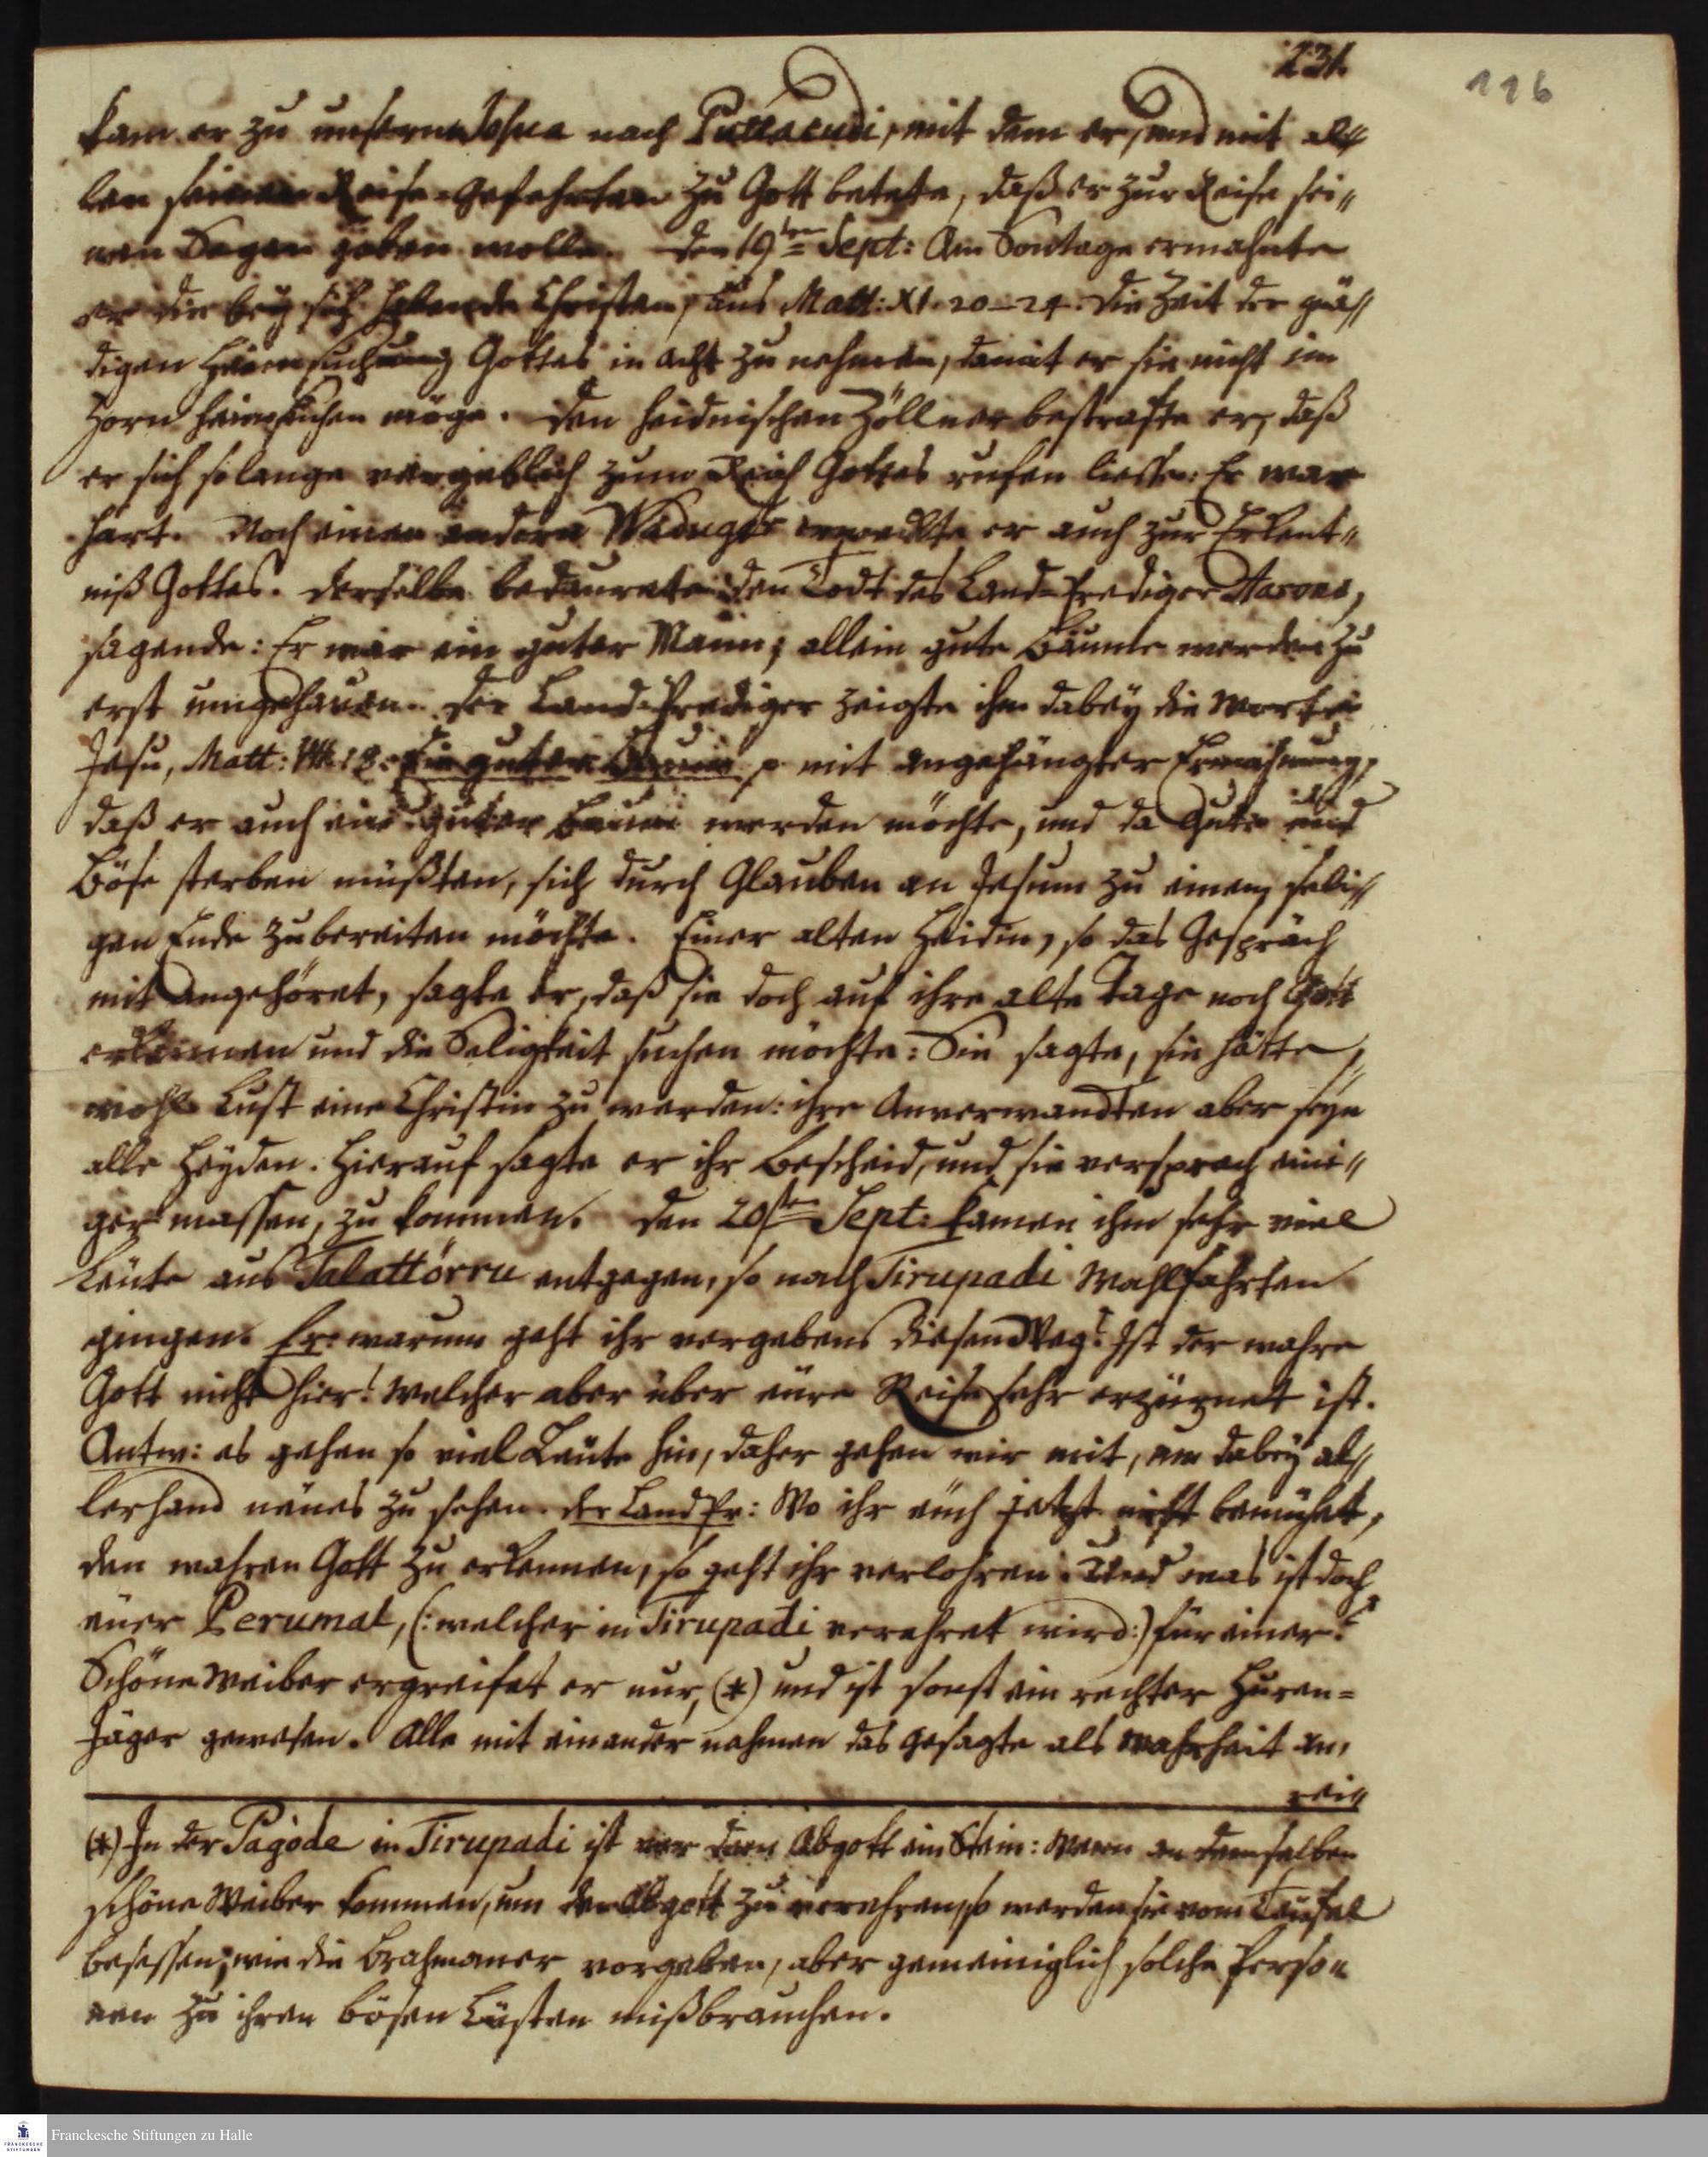 231.
116
kam er zu unserm Josua nach Puttacudi, mit dem er, und mit al„
len seinen Reise-Gefehrten zu Gott betete, daß er zur Reise sei„
nen Segen geben wolle. Den 19ten Sept: Am Sontage ermahnte
er die bey sich habende Christen, aus Matt: XI. 20–24. die Zeit der gnä„
digen Heimsuchung Gottes in acht zu nehmen, damit er sie nicht im
Zorn heimsuchen möge. Den heidnischen Zöllner bestrafte er, daß
er sich so lange vergeblich zum Reich Gottes rufen liesse: Er war
hart. Noch einen andern Waduger erweckte er auch zur Erkent„
niß Gottes. Derselbe bedaurete den Todt des Land-Prediger Aarons,
sagende: Er war ein guter Mann; allein gute Bäume werden zu
erst umgehauen. Der Land-Prediger zeigte ihm dabey die Worte
Jesu, Matt: VII. 18. Ein guter Baum p mit angehängter Ermahnung,
daß er auch ein guter Baum werden möchte, und da Gute und
Böse sterben müßten, sich durch Glauben an Jesum zu einem seli„
gen Ende zubereiten möchte. Einer alten Heidin, so das Gespräch
mit angehöret, sagte er, daß sie doch auf ihre alte Tage noch Gott
erkennen und die Seligkeit suchen möchte: Sie sagte, sie hätte,
wohl Lust eine Christin zu werden: ihre Anverwandten aber seyn
alle Heyden. Hierauf sagte er ihr Bescheid, und sie versprach eini„
ger massen, zu kommen. Den 20sten Sept: kamen ihm sehr viel
Leute aus Talattörru entgegen, so nach Tirupadi Wahlfahrten
gingen. Er: warum geht ihr vergebens diesen Weg? Ist der wahre
Gott nicht hier? welcher aber über eure Reise sehr erzürnet ist.
Antw: es gehen so viel Leute hin, daher gehen wir mit, um dabey al„
lerhand neues zu sehen. der Land Pr: Wo ihr euch jetzt nicht bemühet,
den wahren Gott zu erkennen, so geht ihr verlohren. Und was ist doch
euer Perumal, (: welcher in Tirupadi verehret wird :) für einer?
Schöne Weiber ergreifet er nur, (*) und ist sonst ein rechter Huren=
Jäger gewesen. Alle mit einander nahmen das gesagte als Wahrheit an,
rei„
(*) In der Pagode in Tirupadi ist vor dem Abgott ein Stein: Wenn an demselben
schöne Weiber kommen, um den Abgott zu verehren, so werden sie vom Teufel
besessen, wie die Brahmaner vorgeben, aber gemeiniglich solche Perso„
nen zu ihren bösen Lüsten mißbrauchen.
FRANCKESCHE STIFTUNGEN
Franckesche Stiftungen zu Halle